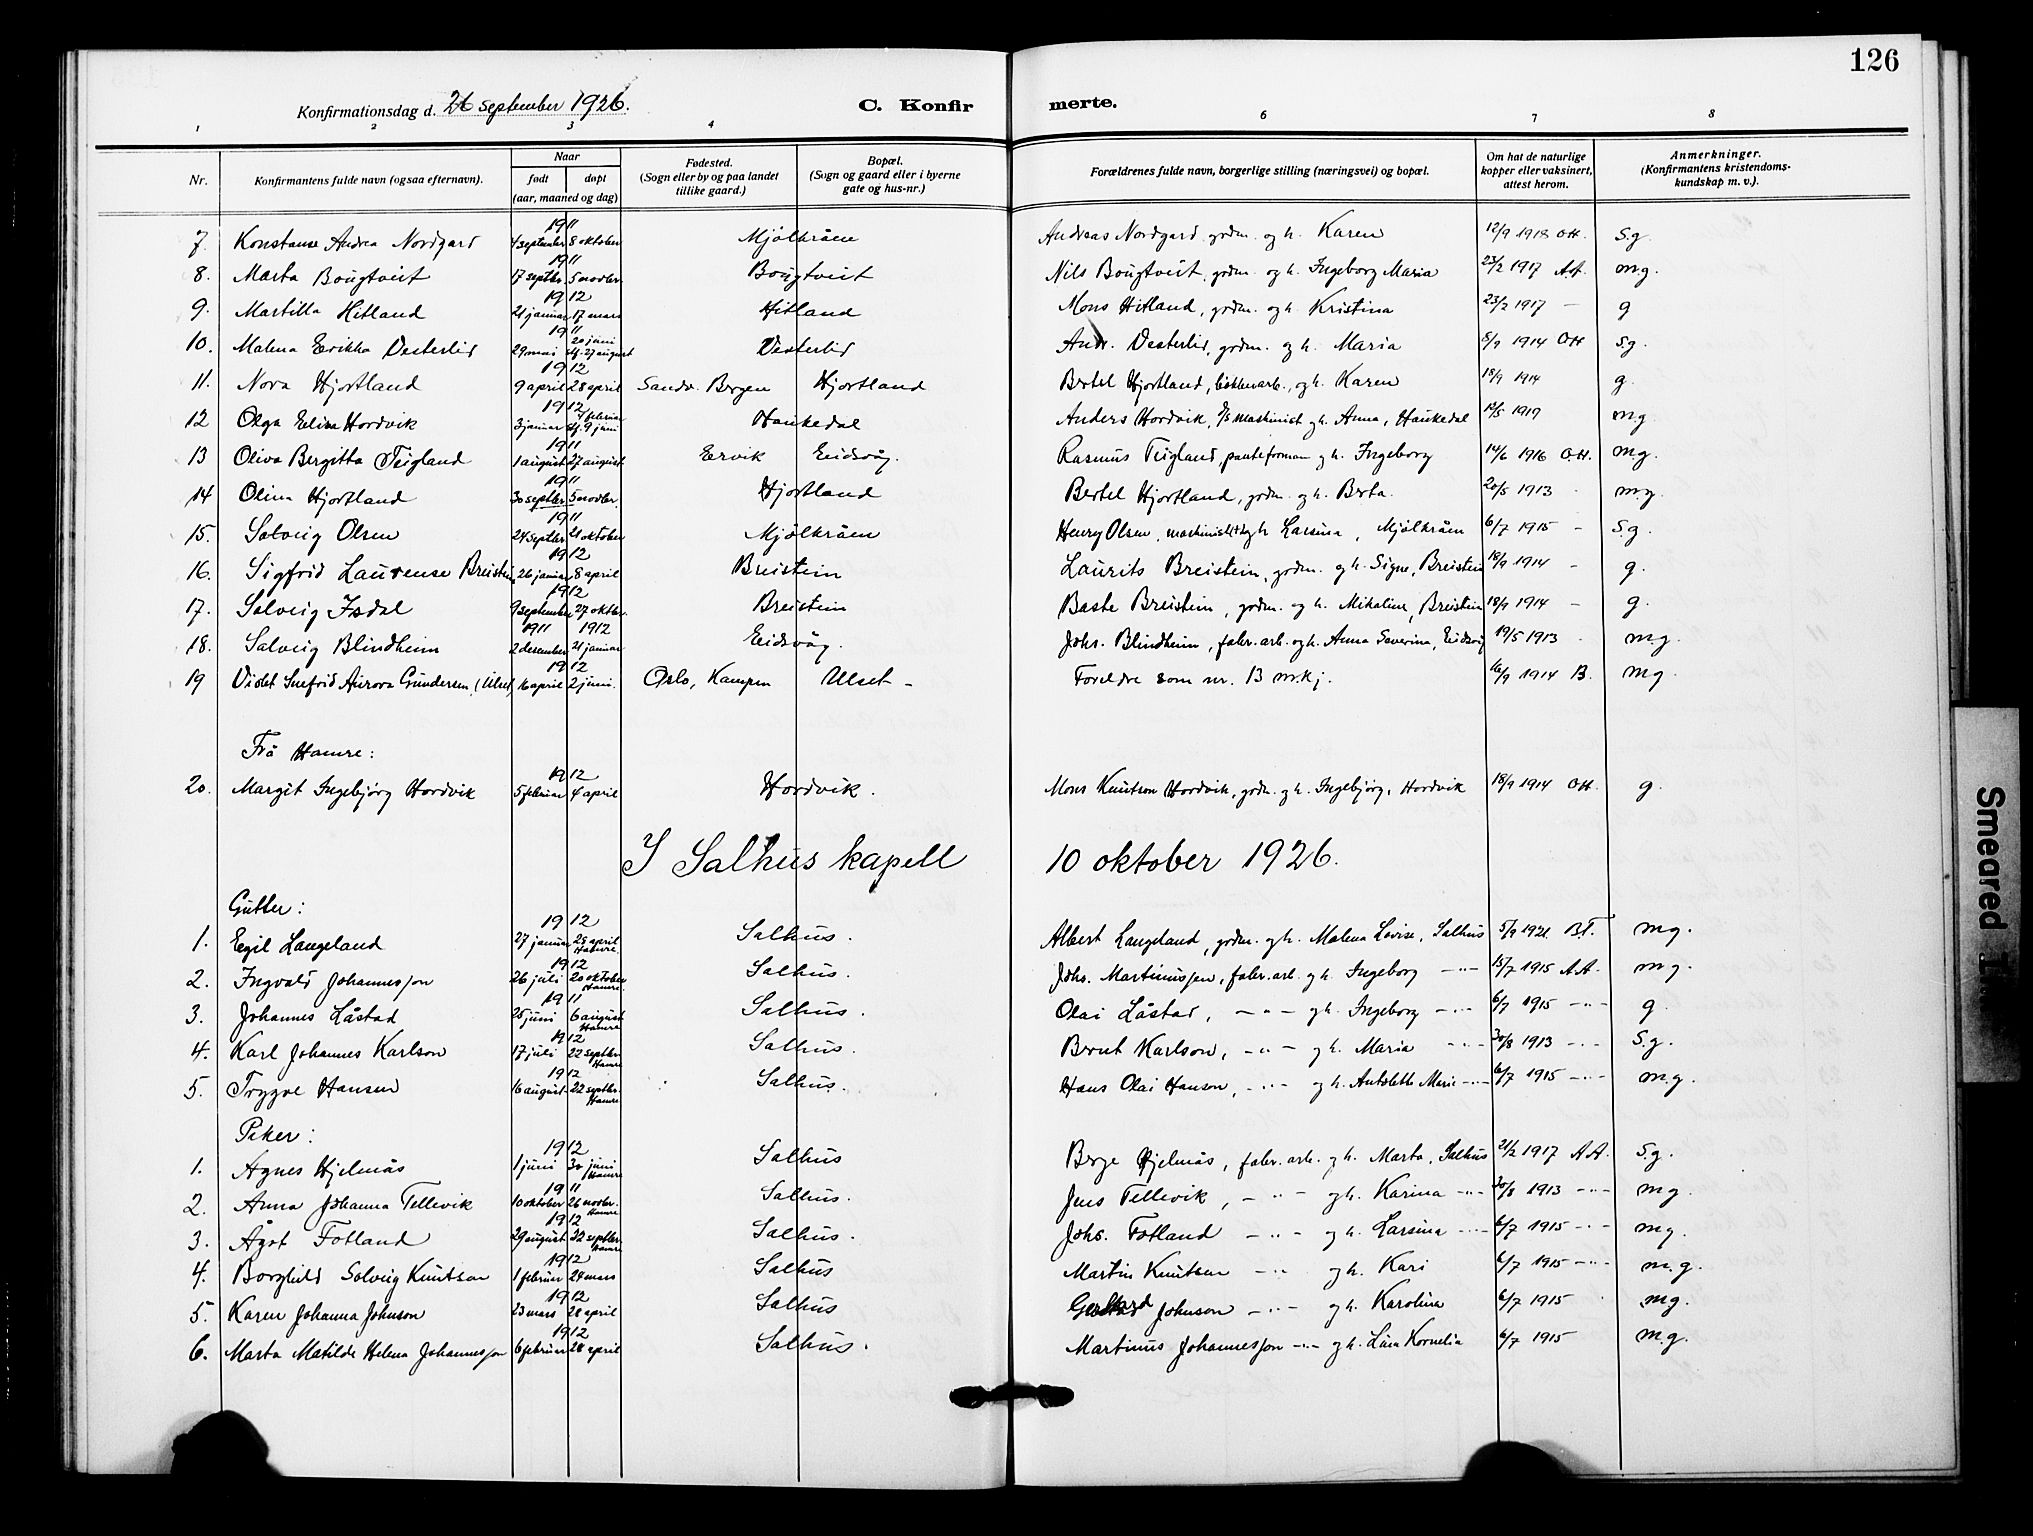 126
Konfirmationsdag d. 26 september 1926.
C. Konfirmerte.
1 2 3 4 6 7 8
Nr. Konfirmantens fulde navn (ogsaa efternavn). Naar født døpt (aar, maaned og dag) Fødested. (Sogn eller by og paa landet tillike gaard.) Bopæl. (Sogn og gaard eller i byerne gate og hus-nr.) Forældrenes fulde navn, borgerlige stilling (næringsvei) og bopæl. Om hat de naturlige kopper eller vaksinert, attest herom. Anmerkninger. (Konfirmantens kristendoms-kundskap m. v.).
7. Konstanse Andrea Nordgard 1911 4 september 8 oktober Mjølkråen Andreas Nordgard, grdm. og h. Karen 12/9 1918 O.H. S.g.
8. Marta Bougtveit 1911 17 septbr. 5 novbr. Bougtveit Nils Bougtveit, grdm. og h. Ingeborg Maria 23/2 1917 A.A. m.g.
9. Martilla Hitland 1912 21 januar 17 mars Hitland Mons Hitland, grdm. og h. Kristina 23/2 1917 — g
10. Malena Erikka Vesterlid 1911 29 mai 20 juni stf. 27 august Vesterlid Andr. Vesterlid, grdm. og h. Maria 8/9 1914 OH S.g.
11. Nora Hjortland 1912 9 april 28 april Sandv. Bergen Hjortland Bertel Hjortland, og h. Karen 18/9 1914 g.
12 Olga Elisa Hordvik 1912 3 januar 4 februar stf. 9 juni Haukedal Anders Hordvik, D/S maskinist og h. Anna, Haukedal 19/5 1919 m.g
13 Oliva Bergitta Teigland 1911 1 august 27 august Eervik Eidsvåg. Rasmus Teigland, og h. Ingeborg 14/6 1916 O.H. m.g.
14 Olina Hjortland 1911 30 septbr 5 novbr. Hjortland Bertel Hjortland, grdm. og h. Berta. 20/5 1913 - m.g.
15. Solveig Olsen 1911 24 septbr 21 oktober Mjølkråen Henry Olsen, maskinist og h. Larsina, Mjølkråen 6/7 1915 - S.g.
16. Sigfrid Laurense Breistein 1912 26 januar 8 april Breistein Laurits Breistein, grdm. og h. Signe, Breistein 18/9 1914 - g.
17. Solveig Isdal 1912 9 september 27 oktbr. Breistein Baste Breistein, grdm. og h. Mikaline, Breistein 18/9 1914 - g.
18. Solveig Blindheim 1911 1912 2 desember 21 januar Eidsvåg. Johs. Blindheim, fabr. arb. og h. Anna Severina, Eidsvåg 19/5 1913 - m.g.
19 Violet Snefrid Aurora Gundersen, (Ulset) 1912 16 april 2 juni. Oslo, Kampen Ulset - Foreldre som nr. 13 m.kj. 16/9 1914 B. m.g.
Frå Hamre:
20. Margit Ingebjørg Hordvik 1912 5 februar 4 april Hordvik. Mons Knutson Hordvik, grdm. og h. Ingebjørg, Hordvik 18/9 1914 OH. g.
I Salhus kapell 10 oktober 1926.
Gutter:
1. Egil Langeland 1912 27 januar 28 april Hamre. Salhus. Albert Langeland, grdm. og h. Malena Lovise, Salhus 5/9 1921 B.T. m.g.
2. Ingvald Johannesson 1912 26 juli 20 oktober Hamre. Salhus. Johs. Martinussen, fabr. arb. og h. Ingeborg -"- 15/7 1915 A.A. m.g.
3. Johannes Låstad 1911 25 juni 6 august Hamre Salhus. Olai Låstad, -"- og h. Ingeborg -"- 6/7 1915 -"- g.
4. Karl Johannes Karlson 1912 17 juli 22 septbr. Hamre Salhus. Bernt Karlson, -"- og h. Maria -"- 30/8 1913 -"- S.g.
5. Trygve Hansen 1912 16 august 22 septbr. Hamre Salhus. Hans Olai Hanson, -"- og h. Marie -"- 6/7 1915 -"- m.g.
Piker:
1. Agnes Hjelmås 1912 1 juni 30 juni Hamre Salhus Berge Hjelmås, fabr. arb. og h. Marta, Salhus 21/2 1917 A.A. S.g.
2. Anna Johanna Tellevik 1911 10 oktober 26 novbr. Hamre Salhus. Jens Tellevik, -"- og h. Karina -"- 30/8 1913 -"- m.g.
3. Ågot Fotland 1912 29 august 22 septbr. Hamre Salhus. Johs. Fotland -"- og h. Larsina -"- 6/7 1915 -"- m.g.
4. Borghild Solveig Knutson 1912 1 februar 24 mars Salhus Martin Knutsen -"- og h. Kari 6/7 1915 -"- m.g.
5. Karen Johanna Johnson 1912 23 mars 28 april Salhus Gerhard Johnson -"- og h. Karolina 6/7 1915 m.g.
6. Marta Matilde Helena Johannesson 1912 6 februar 28 april Salhus. Martinus Johannesson -"- og h. Kornelia 6/7 1915 m.g.
Smeared